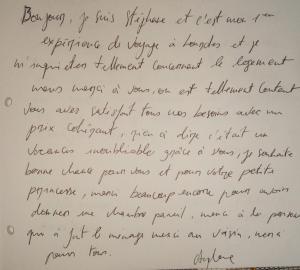 Bonjour, je suis Stéphane et c'est mon 1ère
expérience de voyage à Londres et je
m'inquiéter tellement concernant le logement
mais merci à vous, on est tellement content
vous avez satisfait tous nos besoins avec un
prix cohérent, rien à dire c'était un
vacances inoubliable grâce à vous, je souhaite
bonne chance pour vous et pour votre petite
princesse, merci beaucoup encore pour avoir
donner une chambre, merci à la personne
qui a fait le menage merci au voisin, merci
pour tous.